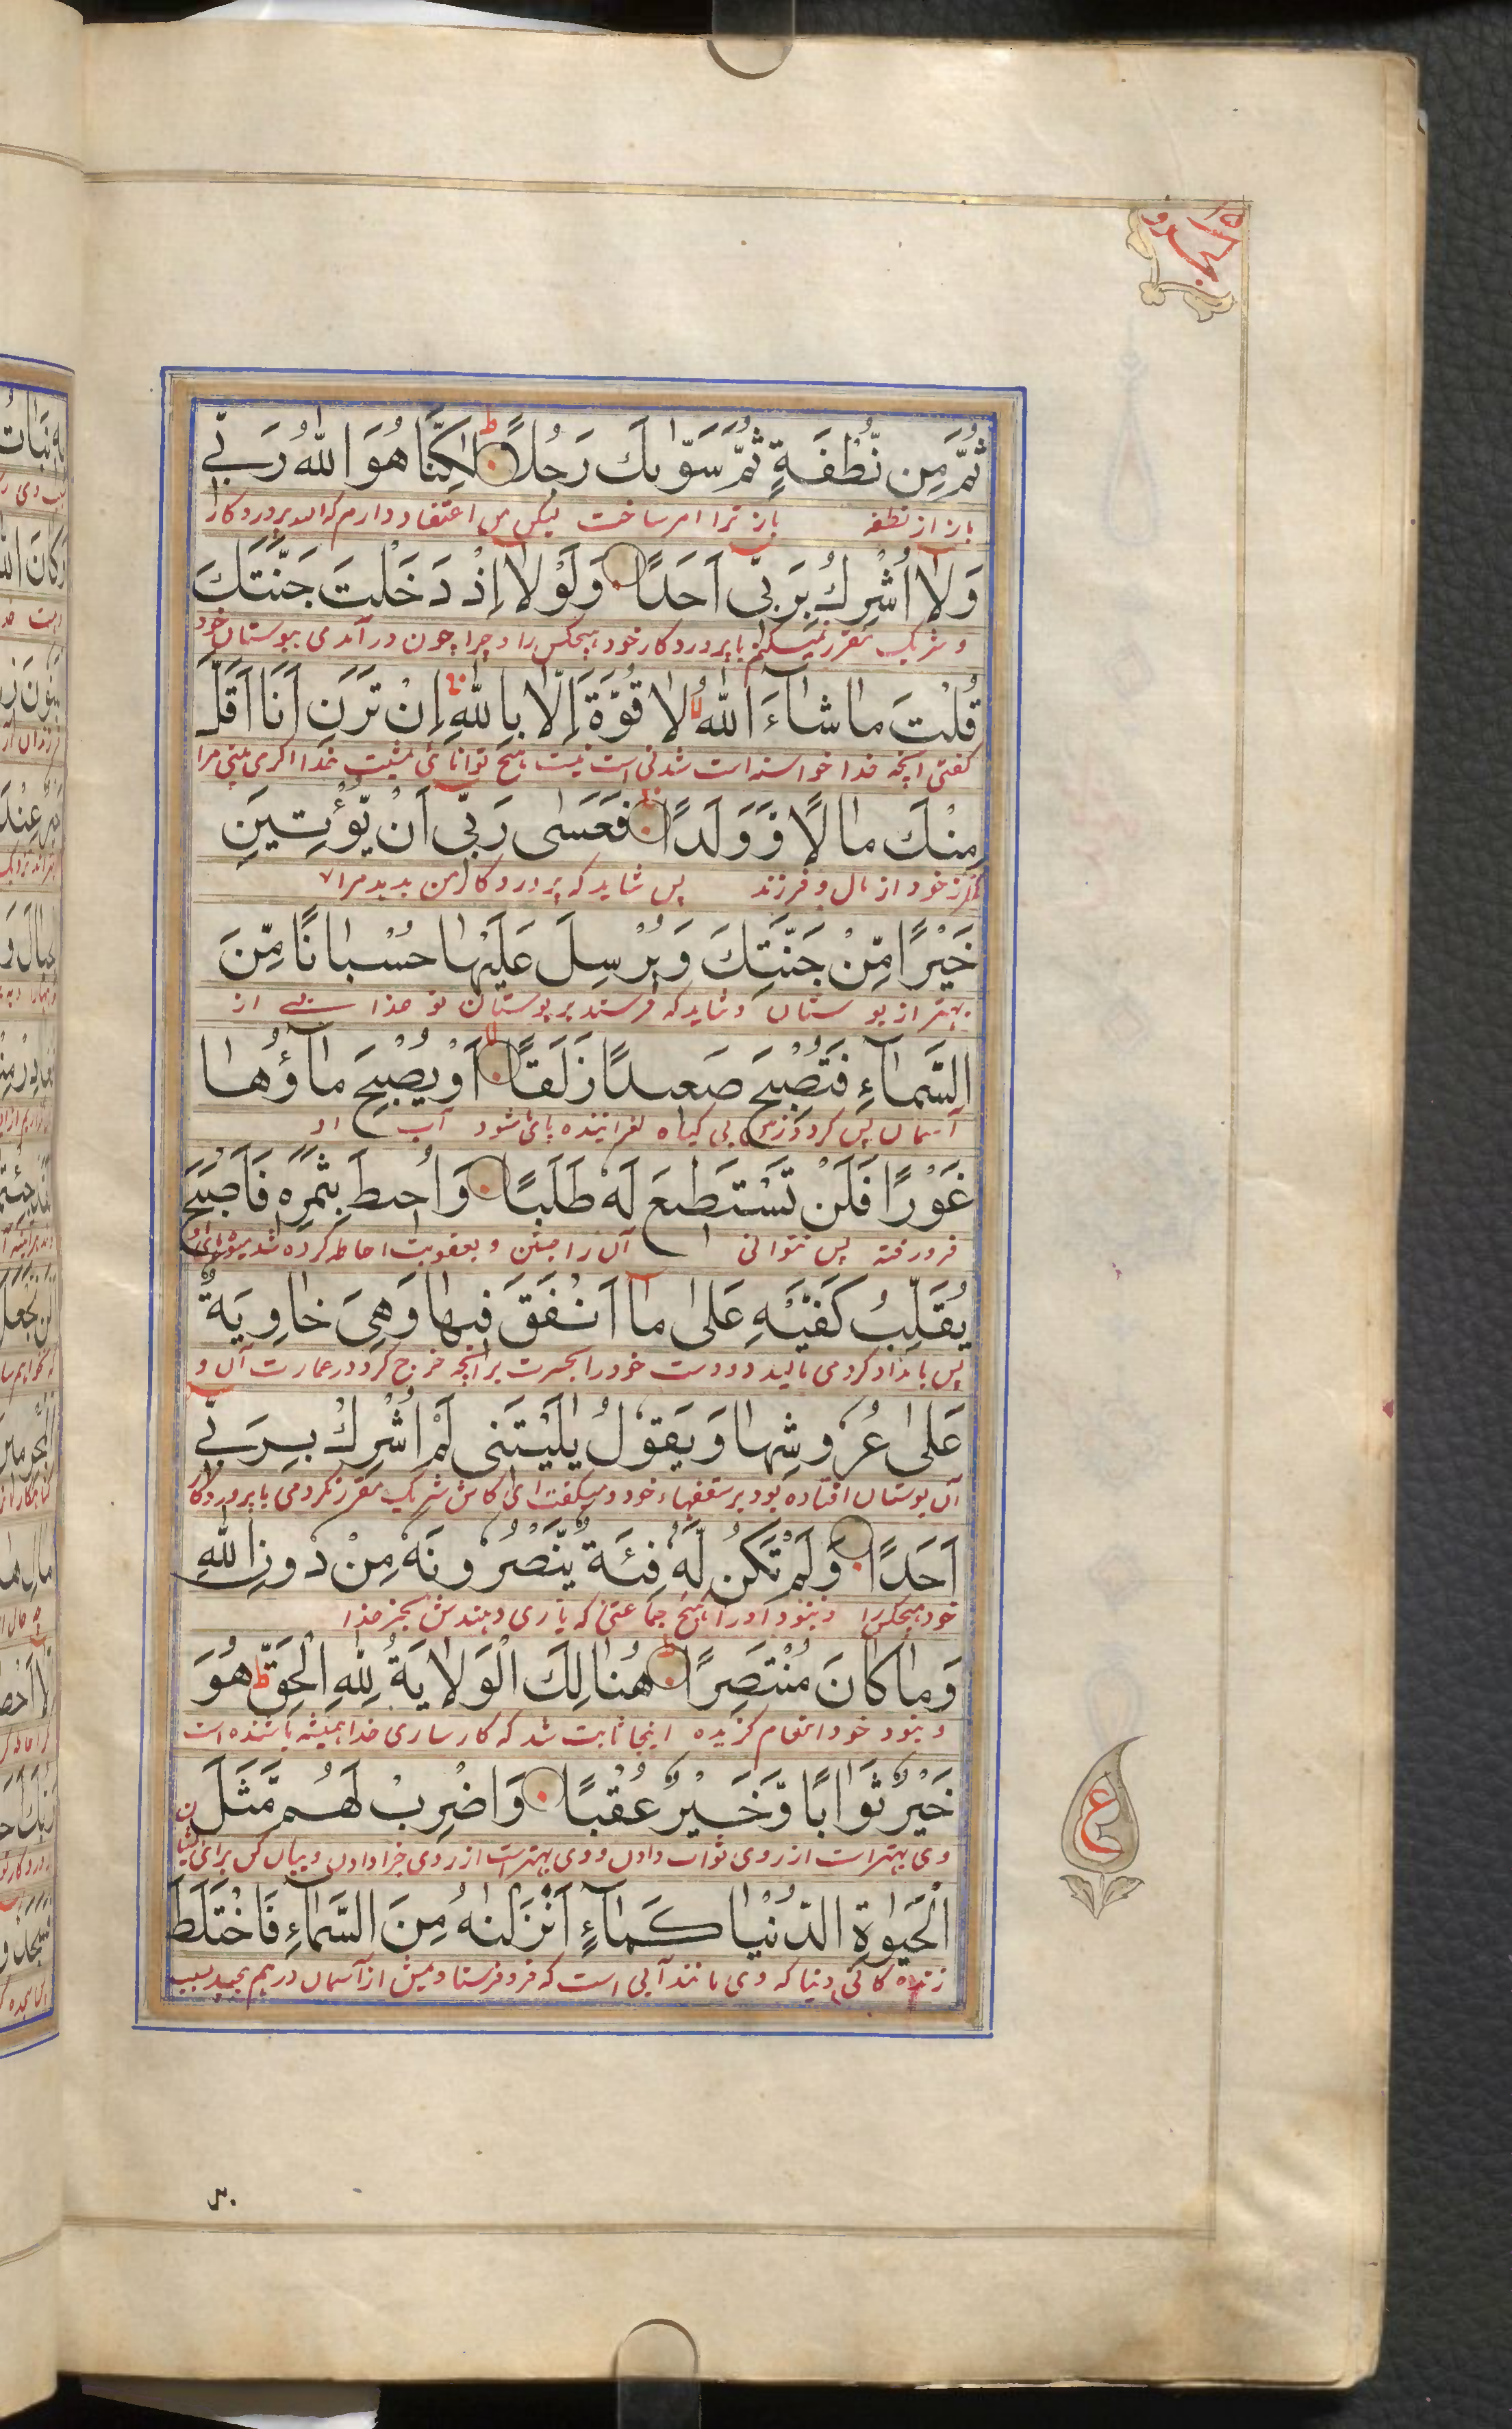 ثُمَّ مِن نُّطْفَةٍ ثُمَّ سَوّٰىكَ رَجُلًا ۝ لٰكِنَّا هُوَ اللّٰهُ رَبِّي
باز از نطفه باز ترا مرد ساخت لیکن من اعتقاد دارم که الله پروردگار
وَلَا اُشْرِكُ بِرَبِّي اَحَدًا ۝ وَلَوْلَا اِذْ دَخَلْتَ جَنَّتَكَ
و شریک مقرر نمیکنم با پروردکار خود هیچکس را و چرا چون در آمدی ببوستان خود
قُلْتَ مَا شَآءَ اللّٰهُ لَا قُوَّةَ اِلَّا بِاللّٰهِ اِنْ تَرَنِ اَنَا اَقَلَّ
گفتی آنچه خدا خواسته است شدنی است نیست هیچ توانائی مشیت خدا اگر می بینی مرا
مِنْكَ مَالًا وَّوَلَدًا ۝ فَعَسٰى رَبِّي اَنْ يُّؤْتِيَنِ
کمتر از خود از مال و فرزند پس شاید که پروردکار من بدهد مرا
خَيْرًا مِّنْ جَنَّتِكَ وَيُرْسِلَ عَلَيْهَا حُسْبَانًا مِّنَ
بهتر از بوستان و شاید که فرستد بر بوستان تو عذابی از
السَّمَآءِ فَتُصْبِحَ صَعِيدًا زَلَقًا ۝ اَوْ يُصْبِحَ مَآؤُهَا
آسمان پس گردد زمین بی گیاه لغزاننده پای شود آب او
غَوْرًا فَلَنْ تَسْتَطِيعَ لَهٗ طَلَبًا ۝ وَاُحِيطَ بِثَمَرِهٖ فَاَصْبَحَ
فرو رفته پس نتوانی آن را جستن و بعقوبت احاطه کرده شد میوهای او
يُقَلِّبُ كَفَّيْهِ عَلٰى مَا اَنْفَقَ فِيهَا وَهِيَ خَاوِيَةٌ
پس بامداد کرد می مالید دو دست خود را بحسرت بر آنچه خرج کرد در عمارت آن و
عَلٰى عُرُوشِهَا وَيَقُولُ يٰلَيْتَنِي لَمْ اُشْرِكْ بِرَبِّي
آن بوستان افتاده بود بر سقفهاء خود و میگفت ای کاش شریک مقرر نکردمی با پروردگار
اَحَدًا ۝ وَلَمْ تَكُنْ لَّهٗ فِئَةٌ يَّنْصُرُونَهٗ مِنْ دُونِ اللّٰهِ
خود هیچکس را و نبود او را هیچ جماعتی که یاری دهندش بجز خدا
وَمَا كَانَ مُنْتَصِرًا ۝ هُنَالِكَ الْوَلَايَةُ لِلّٰهِ الْحَقِّ هُوَ
و نبود خود انتقام کزیده اینجا ثابت شد که کارسازی خدا همیشه باشنده است
خَيْرٌ ثَوَابًا وَّخَيْرٌ عُقْبًا ۝ وَاضْرِبْ لَهُمْ مَّثَلَ
وی بهتر است از روی ثواب دادن و وی بهتر است از روی جزا دادن و بیان کن برای ایشان
الْحَيٰوةِ الدُّنْيَا كَمَآءٍ اَنْزَلْنٰهُ مِنَ السَّمَآءِ فَاخْتَلَطَ
زنده کانی دنیا که وی مانند آبی است که فرو فرستادیمش از آسمان درهم پیچید بسبب
ع